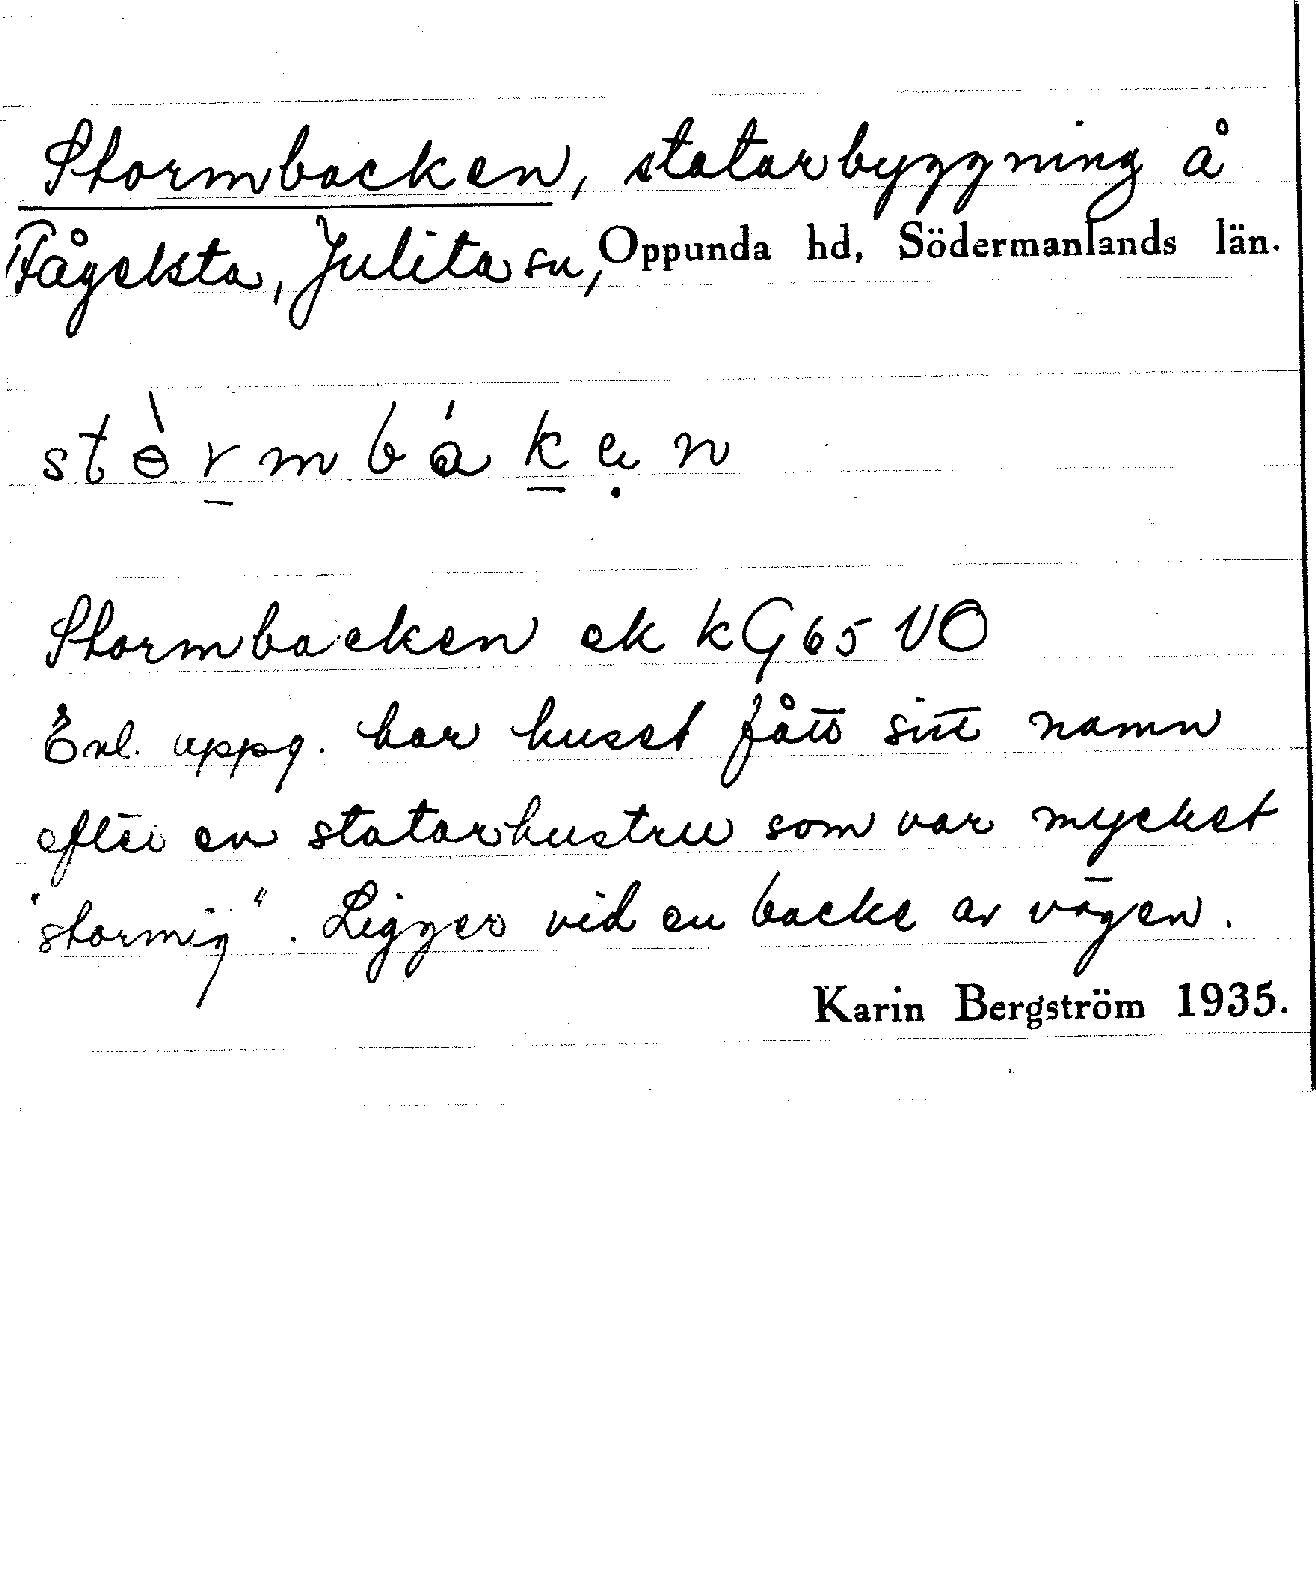 Stormbacken, statarbyggning å
Fågelsta, Julita sn, Oppunda hd, Södermanlands län.
stɵ̀r̲mbák̲ạn
Stormbacken ek kG65 VO
Enl. uppg. har huset fått sitt namn
efter en statarhustru som var mycket
"stormig". Ligger vid en backe av vägen.
Karin Bergström 1935.